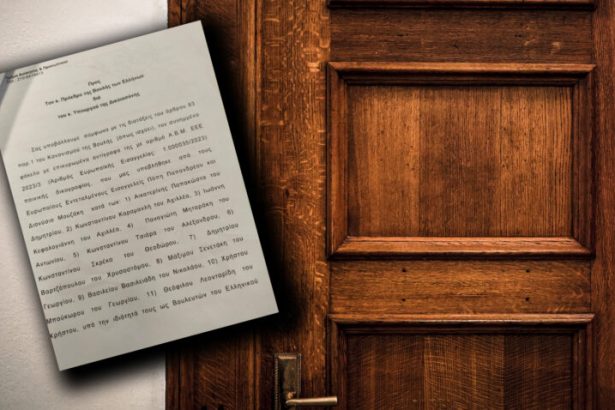 Προς
Τον κ. Πρόεδρο της Βουλής των Ελλήνων
δια
του κ. Υπουργού της Δικαιοσύνης
Σας υποβάλλουμε σύμφωνα με τις διατάξεις του άρθρου 83
παρ.1 του Κανονισμού της Βουλής (όπως ισχύει), τον συνημμένο
φάκελο με επικυρωμένα αντίγραφα της με αριθμό Α.Β.Μ. ΕΕΕ
2023/3 (Αριθμός Ευρωπαϊκής Εισαγγελίας: 1.000035/2023)
ποινικής δικογραφίας, που μας υποβλήθηκε από τους
Ευρωπαίους Εντεταλμένους Εισαγγελείς Πόπη Παπανδρέου και
Διονύσιο Μουζάκη κατά των: 1) Αικατερίνης Παπακώστα του
Δημητρίου, 2) Κωνσταντίνου Καραμανλή του Αχιλλέα, 3) Ιωάννη
Κεφαλογιάννη του Αχιλλέα, 4) Παναγιώτη Μηταράκη του
Αντωνίου, 5) Κωνσταντίνου Τσιάρα του Αλεξάνδρου, 6)
Κωνσταντίνου Σκρέκα του Θεοδώρου, 7) Δημητρίου
Βαρτζόπουλου του Χρυσοστόμου, 8) Μάξιμου Σενετάκη του
Γεωργίου, 9) Βασιλείου Βασιλειάδη του Νικολάου, 10) Χρήστου
Μπουκώρου του Γεωργίου, 11) Θεόφιλου Λεονταρίδη του
Χρήστου, υπό την ιδιότητά τους ως Βουλευτών του Ελληνικού